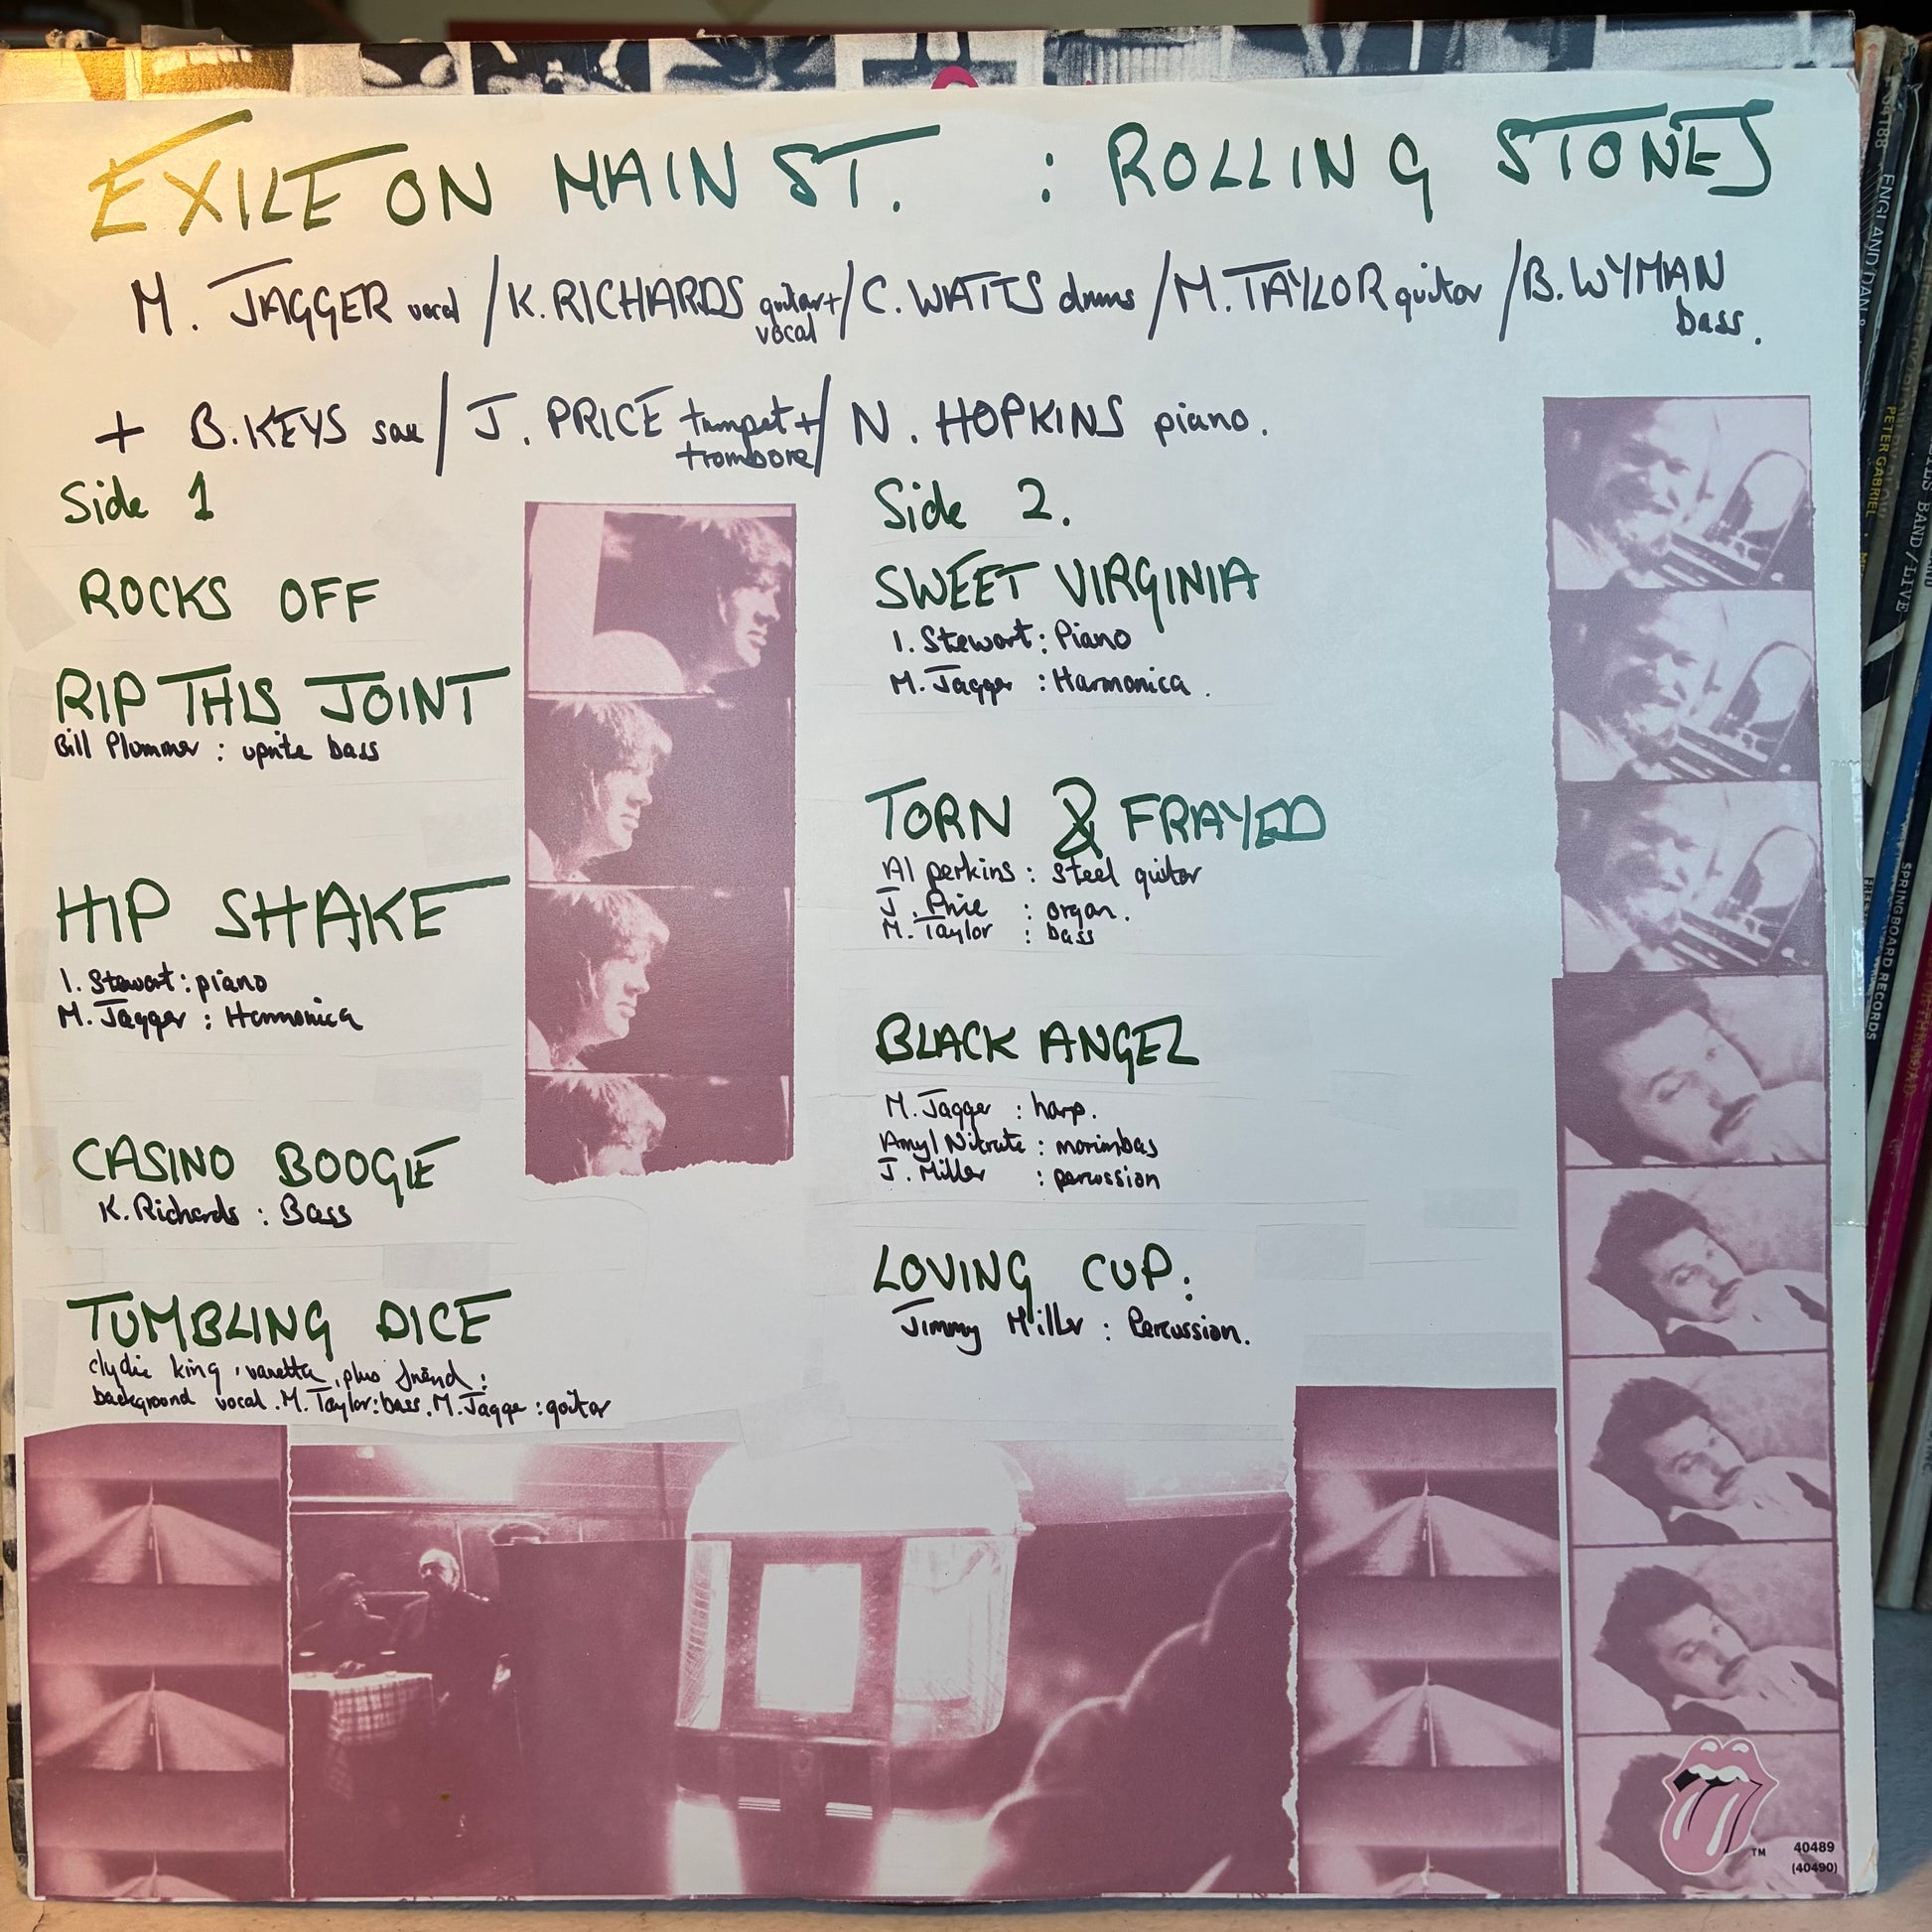 EXILE ON MAIN ST. : ROLLING STONES
M. JAGGER vocal / K. RICHARDS guitar + vocal / C. WATTS drums / M. TAYLOR guitar / B. WYMAN bass.
+ B. KEYS sax / J. PRICE trumpet + trombone / N. HOPKINS piano.
Side 1
ROCKS OFF
RIP THIS JOINT
Bill Plummer : uprite bass
HIP SHAKE
I. Stewart : piano
M. Jagger : Harmonica
CASINO BOOGIE
K. Richards : Bass
TUMBLING DICE
clydie king, vanetta, plus friend :
background vocal. M. Taylor : bass. M. Jagger : guitar
Side 2.
SWEET VIRGINIA
I. Stewart : Piano
M. Jagger : Harmonica.
TORN & FRAYED
Al perkins : steel guitar
J. Price : organ.
M. Taylor : bass
BLACK ANGEL
M. Jagger : harp.
Amyl Nitrate : marimbas
J. Miller : percussion
LOVING CUP :
Jimmy Miller : Percussion.
TM
40489
(40490)
ENGLAND DAN &
PETER GABRIEL
BAND / LIVE
SPRINGBOARD RECORDS